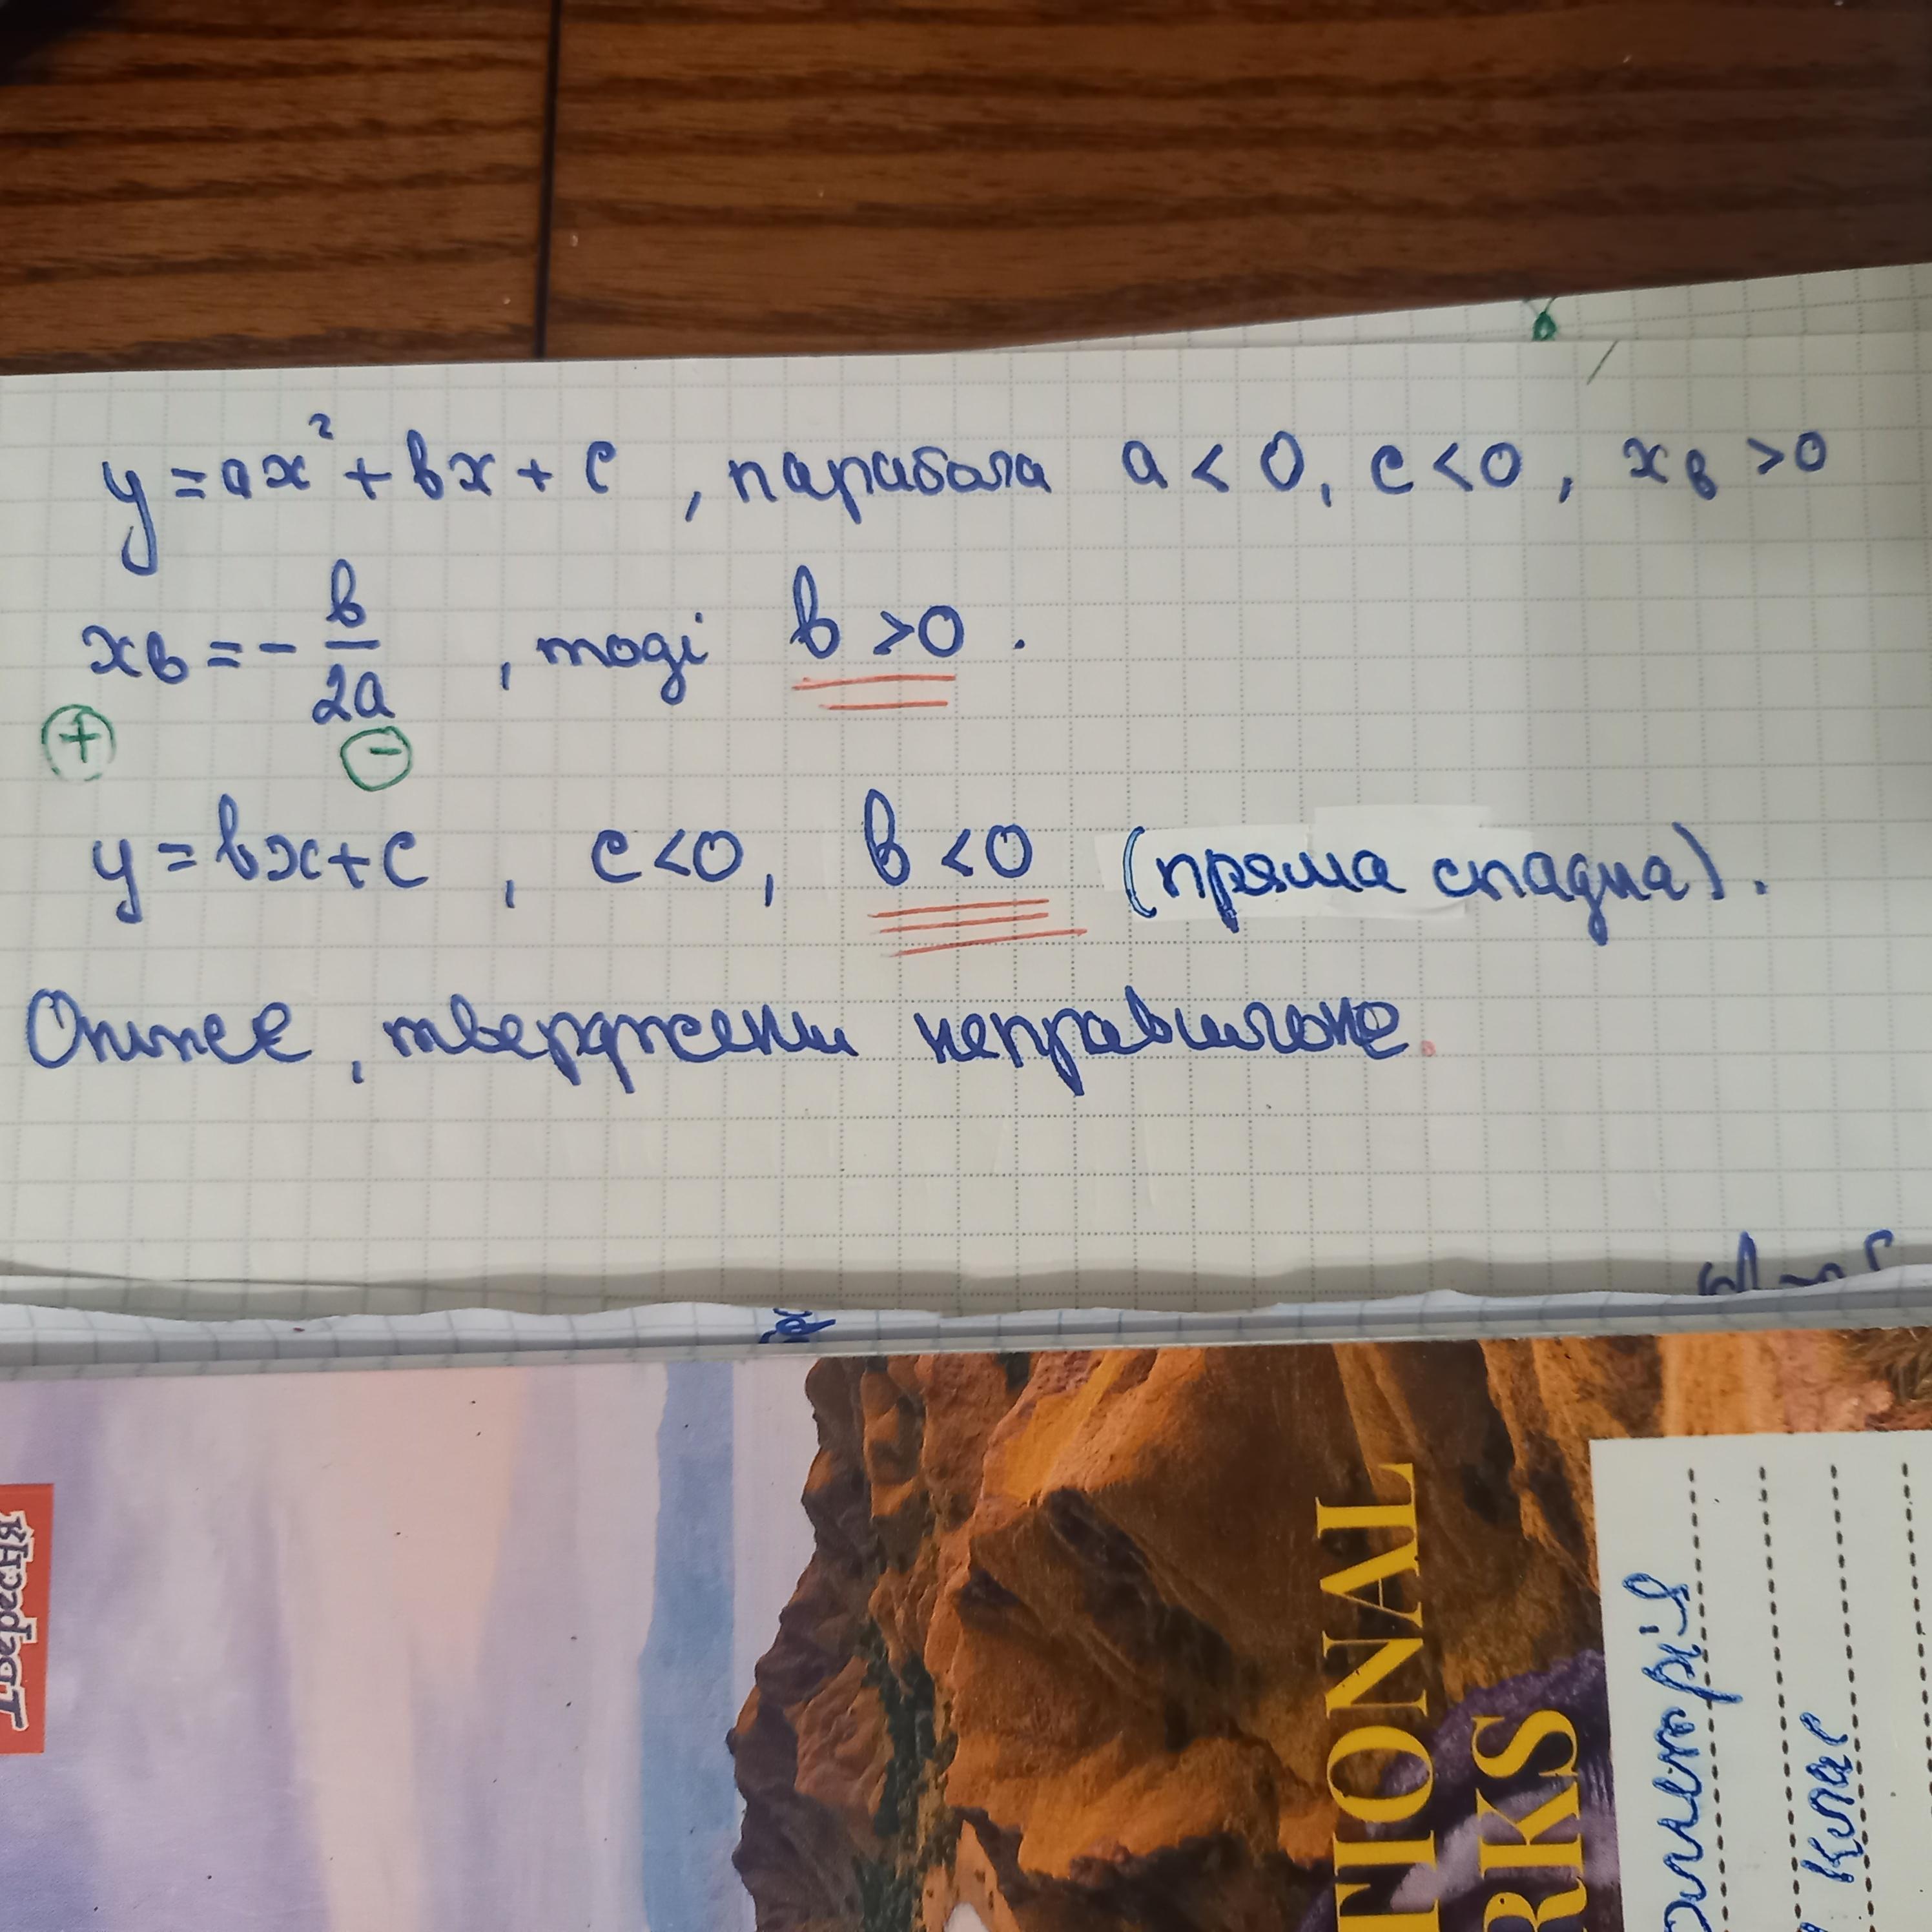 y = ax² + bx + c , парабола a < 0, c < 0, xв > 0
xв = - b/2a , тоді b > 0 .
+ -
y = bx + c , c < 0, b < 0 (пряма спадна).
Отже, твердженн неправильне.
TIONAL
RKS